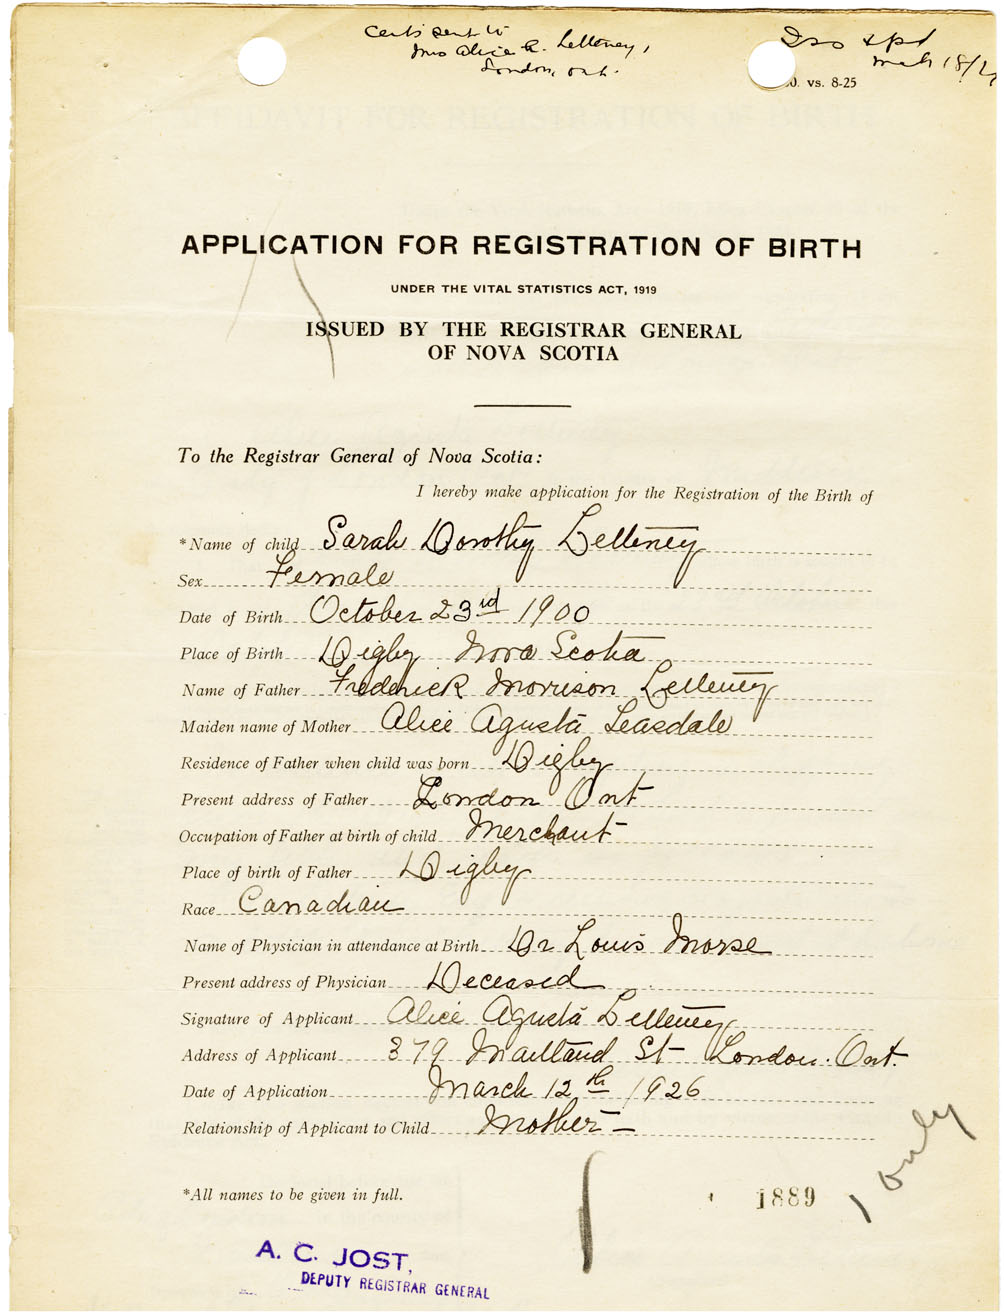 Certs sent to
Mrs Alice A. Letteney,
London, Ont.
Mch 18/2
vs. 8-25
APPLICATION FOR REGISTRATION OF BIRTH
UNDER THE VITAL STATISTICS ACT, 1919
ISSUED BY THE REGISTRAR GENERAL
OF NOVA SCOTIA
To the Registrar General of Nova Scotia:
I hereby make application for the Registration of the Birth of
*Name of child Sarah Dorothy Letteney
Sex Female
Date of Birth October 23rd 1900
Place of Birth Digby Nova Scotia
Name of Father Frederick Morrison Letteney
Maiden name of Mother Alice Agusta Leasdale
Residence of Father when child was born Digby
Present address of Father London Ont
Occupation of Father at birth of child Merchant
Place of birth of Father Digby
Race Canadian
Name of Physician in attendance at Birth Dr Louis Morse
Present address of Physician Deceased
Signature of Applicant Alice Agusta Letteney
Address of Applicant 379 Maitland St London. Ont.
Date of Application March 12th 1926
Relationship of Applicant to Child Mother
1 only
*All names to be given in full.
1889
A. C. JOST,
DEPUTY REGISTRAR GENERAL